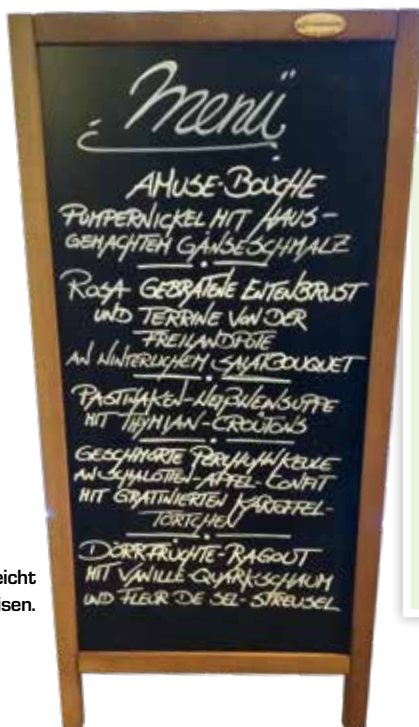 Menü
AMUSE-BOUCHE
PUMPERNICKEL MIT HAUS-
GEMACHTEM GÄNSESCHMALZ
ROSA GEBRATENE ENTENBRUST
UND TERRINE VON DER
FREILANDPUTE
AN WINTERLICHEM SALATBOUQUET
PASTINAKEN-WEIßWEINSUPPE
MIT THYMIAN-CROÛTONS
GESCHMORTE PERLHUHNKEULE
AN SCHALOTTEN-APFEL-CONFIT
MIT GRATINIERTEN KARTOFFEL-
TÖRTCHEN
DÖRRFRÜCHTE-RAGOUT
MIT VANILLE-QUARKSCHAUM
UND FLEUR DE SEL-STREUSEL
eicht
isen.